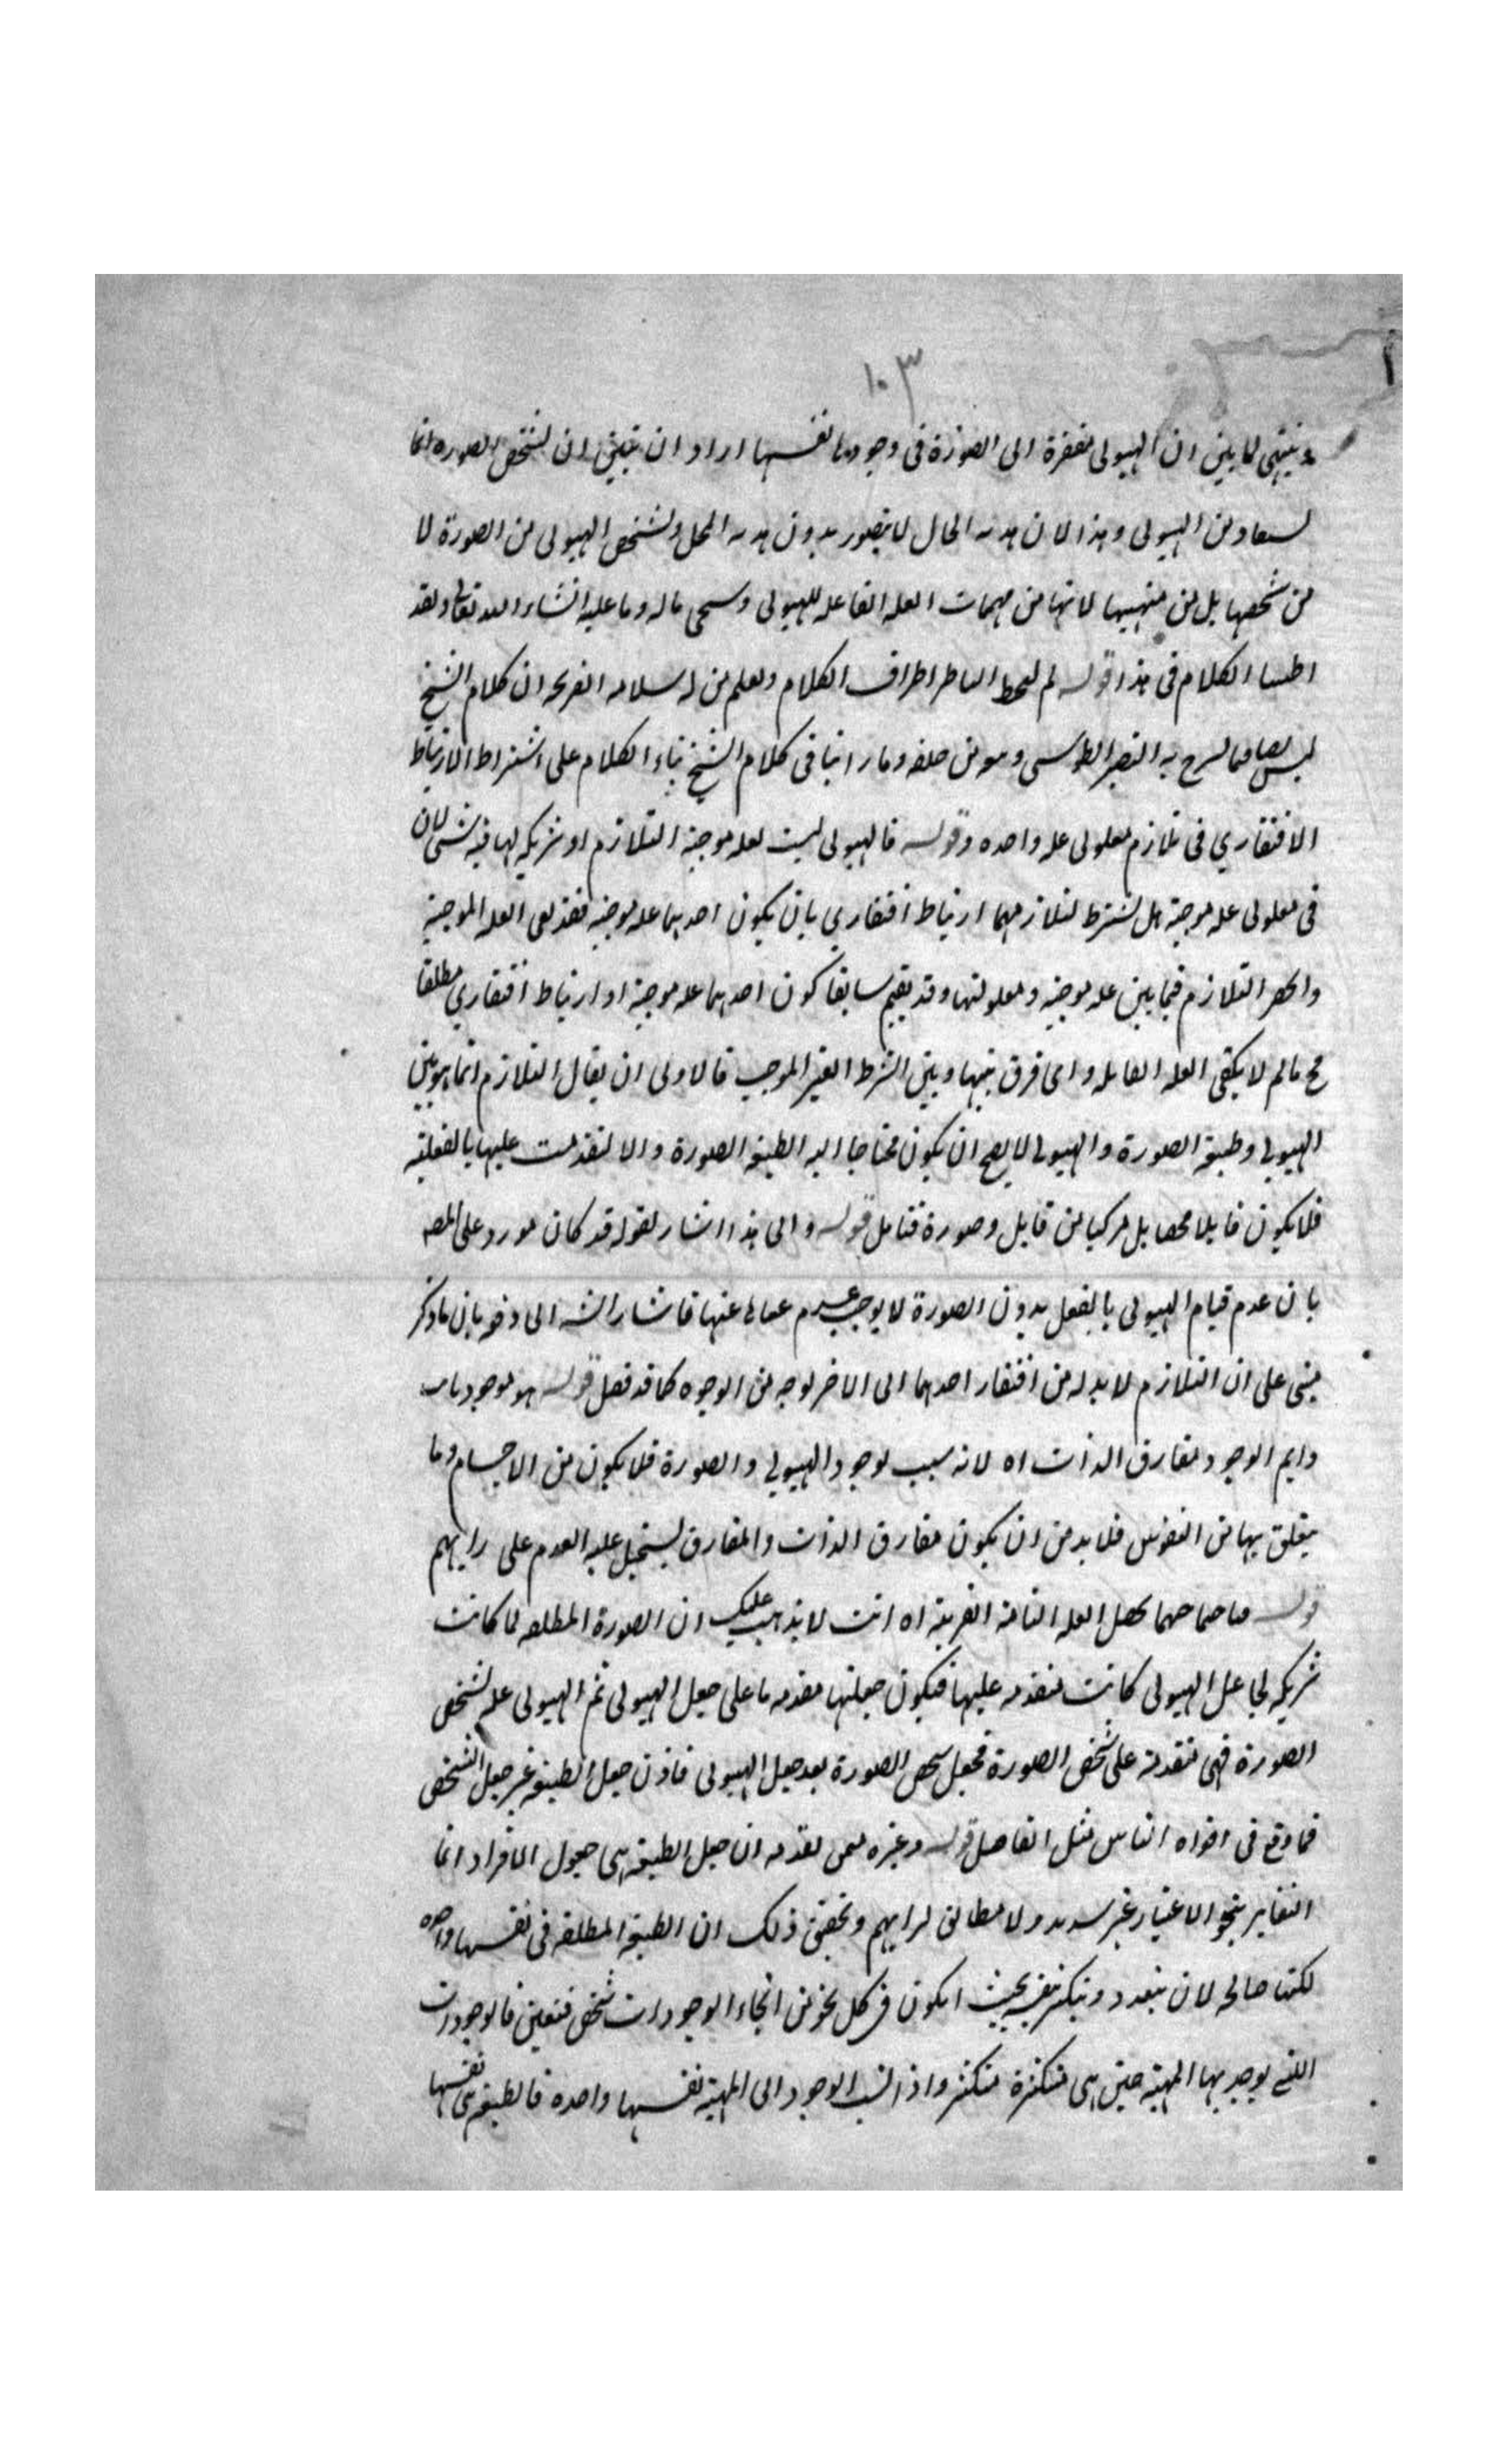 ١٠٣
وينتهي لما بين ان الهيولى مفتقرة الى الصورة في وجودها نفسها اراد ان يبين ان تشخص الصورة انما
من الهيولى وهذا لان هذه الحال لا يتصور بدون هذه المحل وتشخص الهيولى من الصورة لا
من شخصها بل من لانها من مهمات العله الفاعله للهيولى وسيجى ماله وما عليه انشاء الله تعالى ولقد
الكلام في هذا قوله لم اطراف الكلام ويعلم من له سلامه القريحه ان كلام الشيخ
ليس صرح به النصير الطوسي ومن خلفه وما راينا في كلام الشيخ بناء الكلام على اشتراط الارتباط
الافتقاري في تلازم معلولى عله واحده وقوله فالهيولى ليست لعله موجبة التلازم او شريكه لها فيه شئ لان
في معلولى عله موجبة هل يشترط لتلازمهما ارتباط افتقاري بان يكون احدهما عله موجبه فقد لغى العله الموجبة
وانحصر التلازم فيما بين عله موجبه ومعلولتها وقد يقيم سابقا كون احدهما عله موجبة او ارتباط افتقاري مطلقا
مح مالم لا يكفى العله القابله واى فرق بينها وبين الشرط الغير الموجب فالاولى ان يقال التلازم انما هو بين
الهيولى وطبيعة الصورة والهيولى لا يصح ان يكون محتاجا اليه الطبيعة الصورة والا لتقدمت عليها بالفعلية
فلا يكون قابلا محضا بل مركبا من قابل وصورة فتامل قوله والى هذا اشار لقوله قد كان مورد على المصه
بان عدم قيام الهيولى بالفعل بدون الصورة لا يوجب عدم عنها فاشار الشه الى دفعه بان ما ذكر
مبنى على ان التلازم لا بد له من افتقار احدهما الى الاخر لوجه من الوجوه كما قد فصل قوله هو موجود
دايم الوجود مفارق الذات اه لانه سبب لوجود الهيولى والصورة فلا يكون من الاجسام وما
يتعلق بها من النفوس فلا بد من ان يكون مفارق الذات والمفارق يستحيل عليه العدم على رايهم
قوله يحصل العله التامة القريبة اه انت لا يذهب عليك ان الصورة المطلقه لما كانت
شريكه لجاعل الهيولى كانت متقدمه عليها فيكون جعلها مقدما على جعل الهيولى ثم الهيولى عله لتشخص
الصورة فهى متقدمة على شخص الصورة فجعل شخص الصورة بعد جعل الهيولى فاذن جعل الطبيعة غير جعل الشخص
فما وقع في افواه الناس مثل الفاضل قوله وغيره ممن تقدمه ان جعل الطبيعة هى جعول الافراد انما
التغاير بنحو الاعتبار غير سديد ولا مطابق لرايهم وتحقيق ذلك ان الطبيعة المطلقه في نفسها واحده
لكنها صالحه لان يتعدد ويتكثر بحيث يكون في كل نحو من انحاء الوجودات شخص متعين فالوجودات
التي يوجد بها المهية حين هى متكثرة متكثر واذا نسب الوجود الى المهية نفسها واحده فالطبيعة هى نفسها